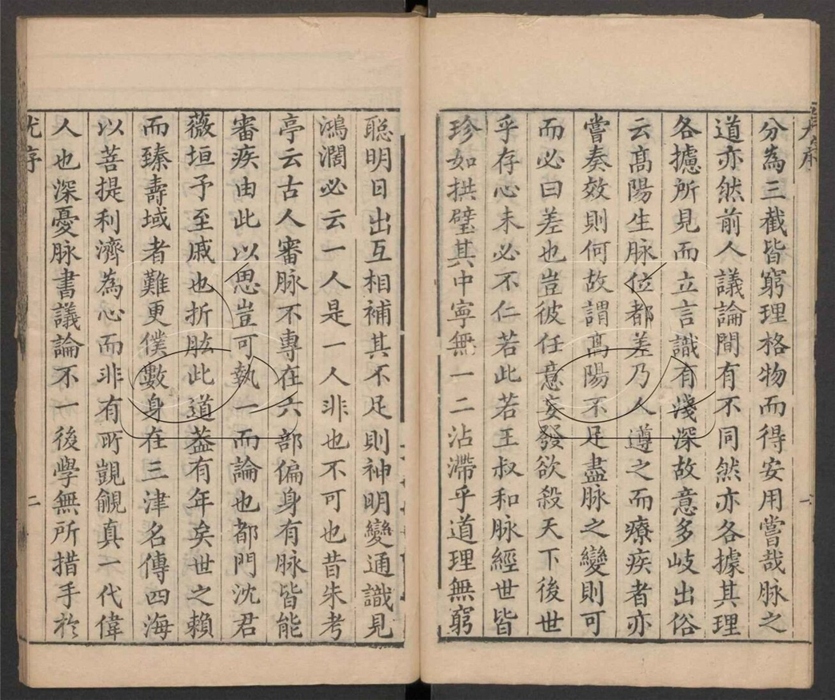 分為三截皆窮理格物而得安用嘗哉脉之
道亦然前人議論間有不同然亦各據其理
各攄所見而立言識有淺深故意多岐出俗
云髙陽生脉位都差乃人遵之而療疾者亦
嘗奏效則何故謂髙陽不足盡脉之變則可
而必曰差也豈彼任意妄發欲殺天下後世
乎存心未必不仁若此若王叔和脉經世皆
珍如拱璧其中寧無一二沾滯乎道理無窮
聪明日出互相補其不足則神明變通識見
鴻濶必云一人是一人非也不可也昔朱考
亭云古人審脉不專在六部偏身有脉皆能
審疾由此以思豈可執一而論也都門沈君
薇垣予至戚也折肱此道葢有年矣世之賴
而臻壽域者難更僕數身在三津名傳四海
以菩提利濟為心而非有所覬覦真一代偉
人也深憂脉書議論不一後學無所措手於
尤序
二